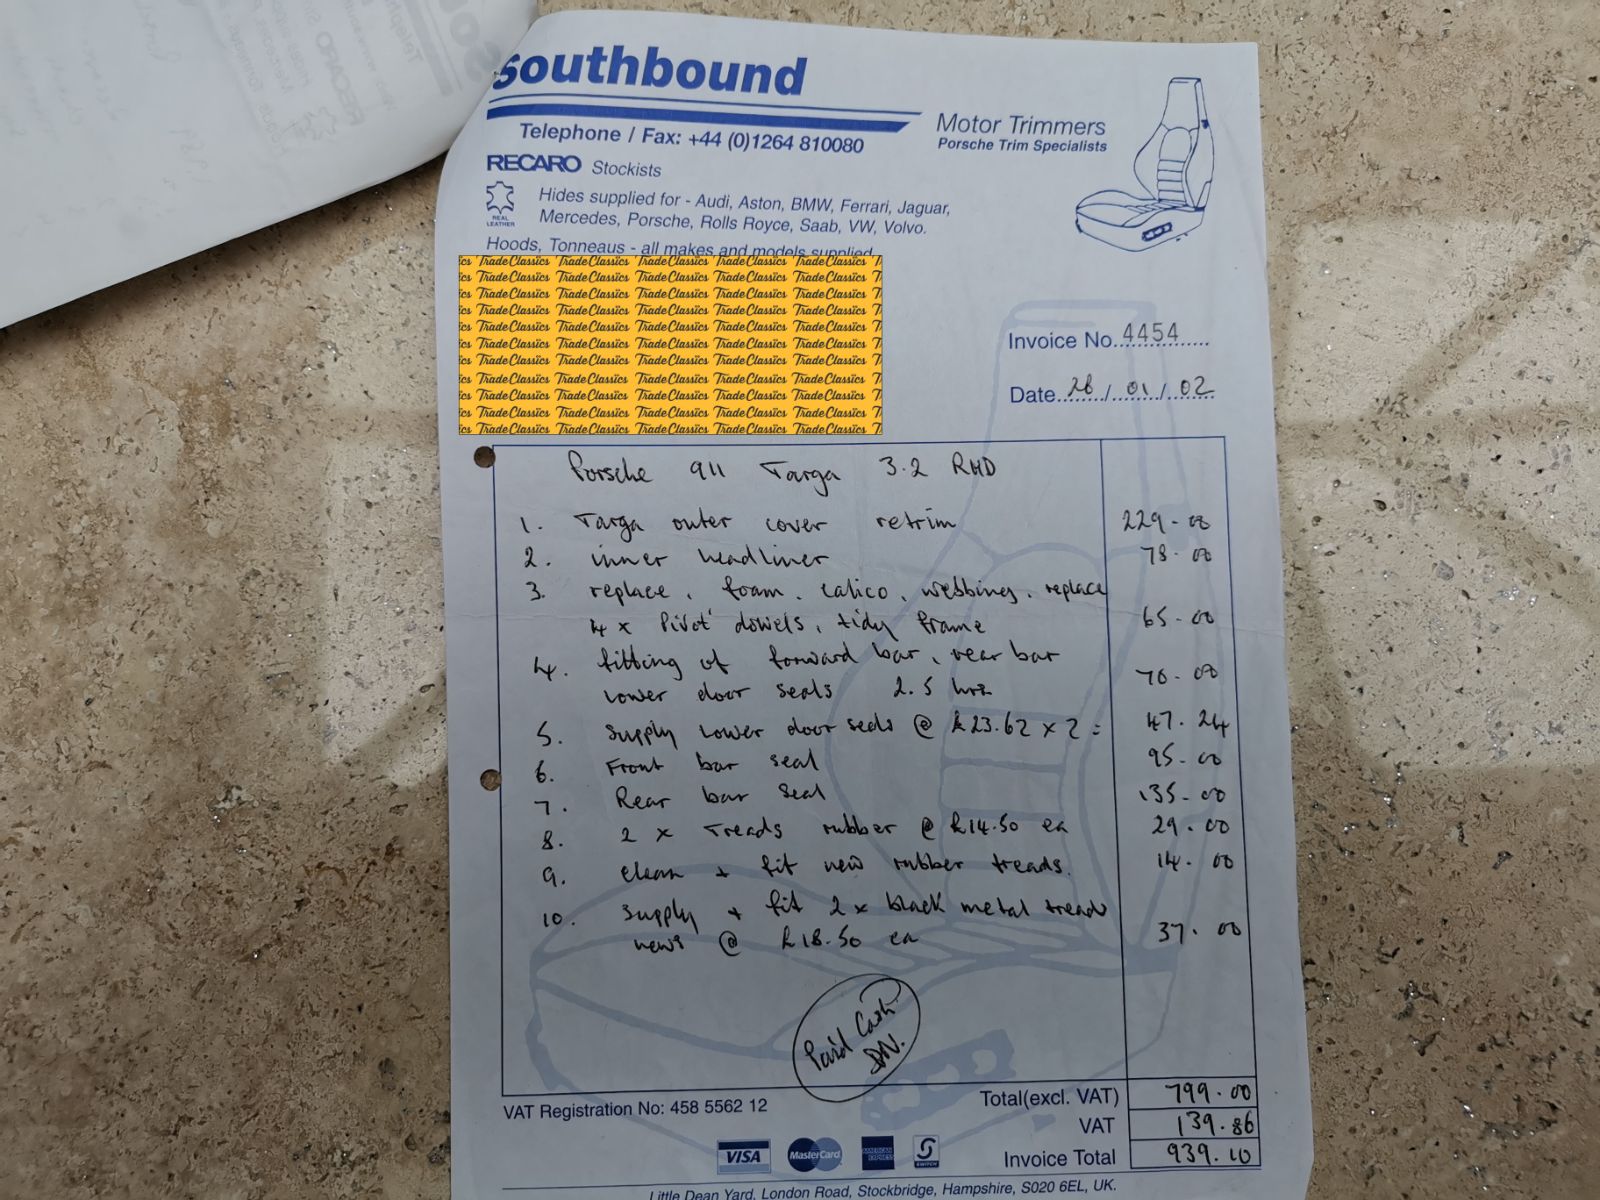 southbound
Telephone / Fax: +44 (0)1264 810080
Motor Trimmers
Porsche Trim Specialists
RECARO Stockists
REAL LEATHER
Hides supplied for - Audi, Aston, BMW, Ferrari, Jaguar,
Mercedes, Porsche, Rolls Royce, Saab, VW, Volvo.
Hoods, Tonneaus - all makes and models supplied
Trade Classics
Invoice No. 4454
Date 28/01/02
Porsche 911 Targa 3.2 RHD
1. Targa outer cover retrim 229-00
2. inner headliner 78-00
3. replace, foam, calico, webbing, replace
4 x Pivot dowels, tidy frame 65-00
4. fitting of forward bar, rear bar
lower door seals 2.5 hrs 70-00
5. Supply lower door seals @ £23.62 x 2 = 47.24
6. Front bar seal 95-00
7. Rear bar seal 135-00
8. 2 x Treads rubber @ £14.50 ea 29.00
9. clean + fit new rubber treads. 14.00
10. Supply + fit 2 x black metal treads
@ £18.50 ea 37.00
Paid Cash
Total(excl. VAT) 799.00
VAT Registration No: 458 5562 12
VAT 139.86
Invoice Total 939.10
VISA MasterCard AMERICAN EXPRESS SWITCH
Little Dean Yard, London Road, Stockbridge, Hampshire, SO20 6EL, UK.